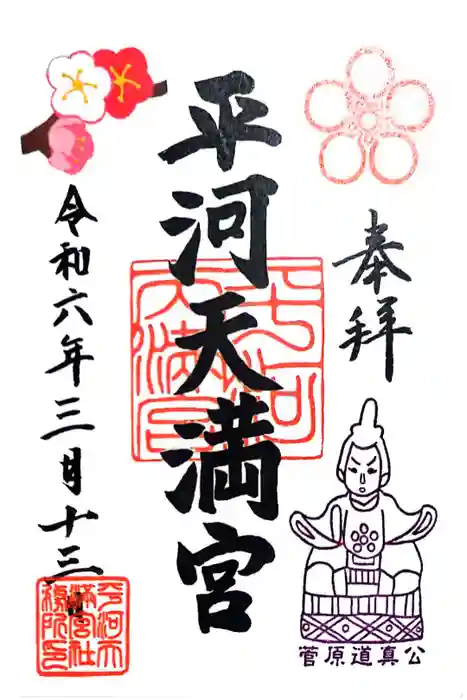 奉拝
平河天満宮
平河天満宮
令和六年三月十三
平河天満宮社務所印
菅原道真公